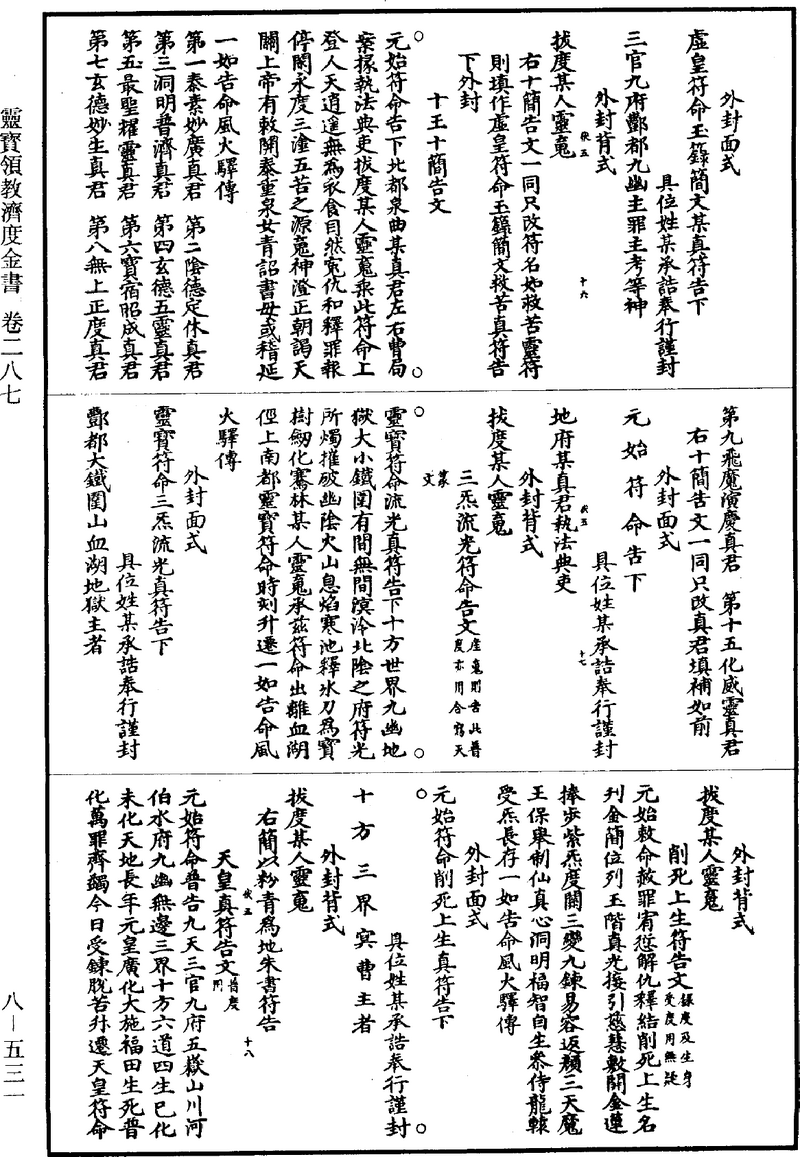 外封面式
虛皇符命玉籙簡文某真符告下
具位姓某承誥奉行謹封
三官九府酆都九幽主罪主考等神
外封背式
拔度某人靈䰟
伏五
右十簡告文一同只改符名如救苦靈符
則填作虛皇符命玉籙簡文救苦真符告
下外封
十六
十王十簡告文
元始符命告下北都泉曲某真君左右曹局
案掾執法典吏拔度某人靈䰟乘此符命上
登人天逍遥無為衣食自然寃仇和釋罪報
停閑永度三塗五苦之源䰟神澄正朝謁天
關上帝有敕開泰重泉女青詔書毋或稽延
一如告命風火驛傳
第一泰素妙廣真君 第二陰德定休真君
第三洞明普濟真君 第四玄德五靈真君
第五最聖耀靈真君 第六寶宿昭成真君
第七玄德妙生真君 第八無上正度真君
第九飛魔演慶真君 第十五化威靈真君
右十簡告文一同只改真君填補如前
外封面式
元始符命告下
具位姓某承誥奉行謹封
地府某真君執法典吏
伏五
十七
外封背式
拔度某人靈䰟
三炁流光符命告文 産䰟則告此普度亦用合寫天篆文
靈寶符命流光真符告下十方世界九幽地
獄大小鐵圍有間無間溟泠北陰之府符光
所燭摧破幽陰火山息焰寒池釋冰刀為寶
樹劒化騫林某人靈䰟承兹符命出離血湖
徑上南都靈寶符命時刻升遷一如告命風
火驛傳
外封面式
靈寶符命三炁流光真符告下
具位姓某承誥奉行謹封
酆都大鐵圍山血湖地獄主者
外封背式
拔度某人靈䰟
削死上生符告文 鍊度及生身受度用無疑
元始敕命赦罪宥愆解仇釋結削死上生名
刋金簡位列玉階真光接引慈慧敷開金蓮
捧步紫炁度關三變九鍊易容返顏三天魔
王保舉制仙真心洞明福智自生參侍龍轅
受炁長存一如告命風火驛傳
外封面式
元始符命削死上生真符告下
具位姓某承誥奉行謹封
十方三界冥曹主者
外封背式
拔度某人靈䰟
右簡以粉青為地朱書符告
伏五
十八
天皇真符告文 普度用
元始符命普告九天三官九府五嶽山川河
伯水府九幽無邊三界十方六道四生巳化
未化天地長年元皇廣化大施福田生死普
化萬罪齊蠲今日受鍊脫苦昇遷天皇符命
靈寶領教濟度金書 卷二八七
八－五三一